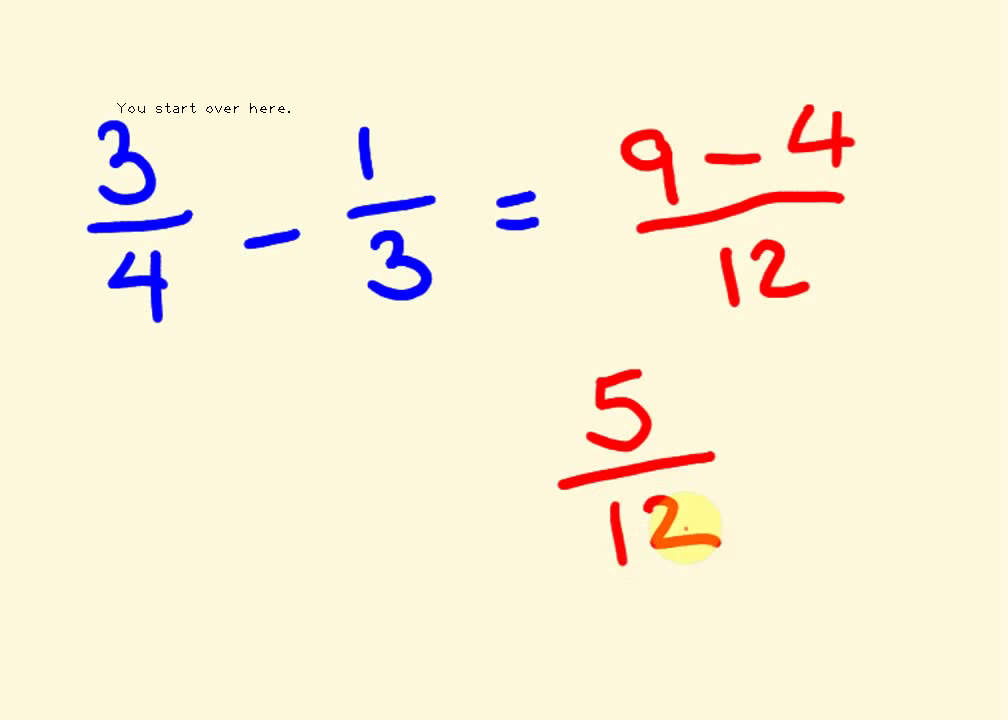 You start over here.
3/4 - 1/3 = 9 - 4/12
5/12